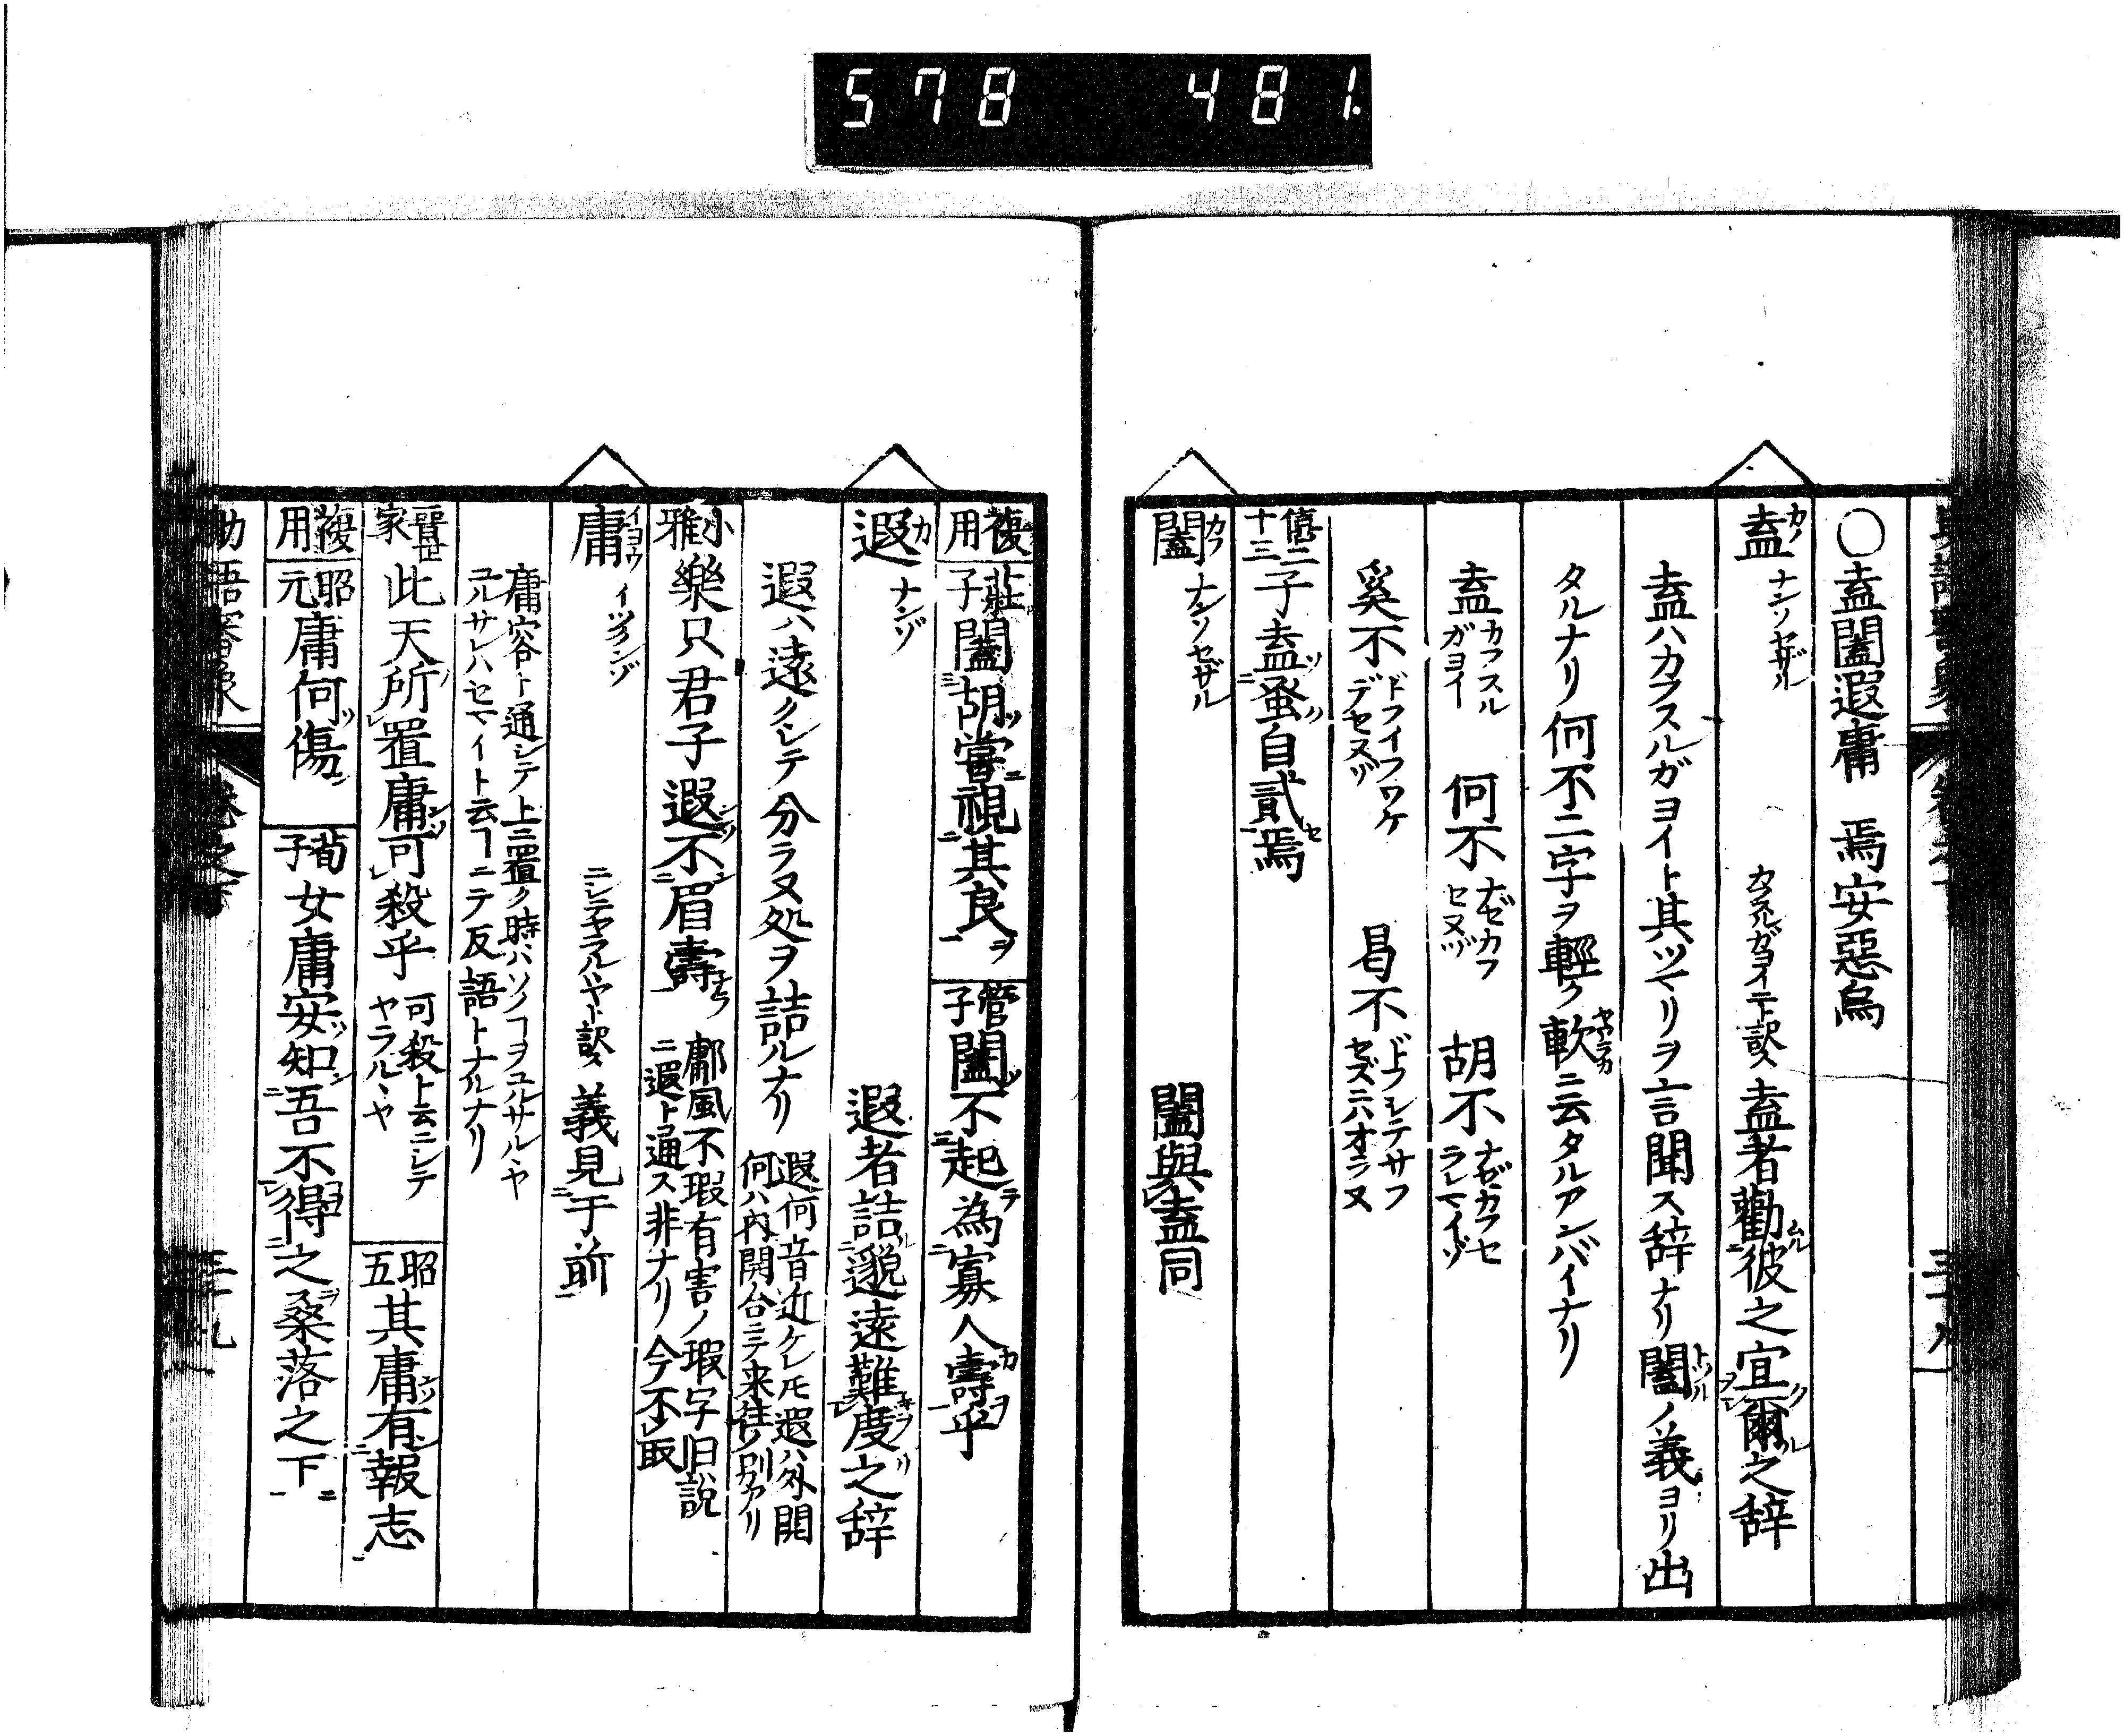 578 481.
○盍闔遐庸 焉安惡烏
盍カフ ナンソセザル カフスルガヨイデト訳ス 盍者勸ムル彼之宜クヲ爾ル之辞
盍ハカフスルガヨイト其ツマリヲ言聞ス辞ナリ闔トツルノ義ヨリ出
タルナリ何不二字ヲ輕ク軟ヤワラカニ云タルアンバイナリ
盍カフスルガヨイ 何不ナゼカフセヌゾ 胡不ナゼカフセラレマイゾ
奚不ドフイフワケデセヌゾ 曷不ドフシテサフセズニハオラヌ
僖二十三 子盍蚤自貳焉
闔カフ ナンソセザル 闔與盍同
複用 莊子 闔胡嘗視其良ヲ 管子 闔不起為寡人壽乎
遐カ ナンゾ 遐者詰邈遠難度之辞
遐ハ遠クシテ分ラヌ処ヲ詰ルナリ 遐何音近ケレ𪜈遐ハ外開何ハ内開合ニテ来往ノ別アリ
小雅 樂只君子遐不眉壽 鄘風不瑕有害ノ瑕字旧説ニ遐ト通ス非ナリ今不取
庸イヨウ イヅクンゾ ニシテヤラルヽヤト訳ス 義見于前
庸容ト通シテ上ニ置ク時ハソノヿヲユルサルヽヤ
ユルサレハセマイト云ヿニテ反語トナルナリ
晋世家 此天所置庸可殺乎 可殺ト云ニシテヤラルヽヤ 昭五 其庸有報志
複用 昭元 庸何傷 荀子 女庸安知吾不得之桑落之下